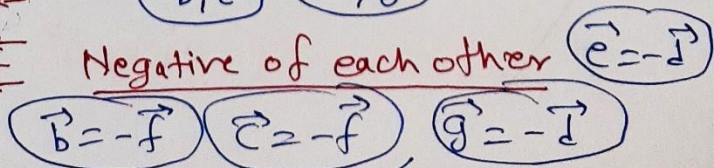 Negative of each other e⃗ = -d⃗
b⃗ = -f⃗ c⃗ = -f⃗, g⃗ = -d⃗